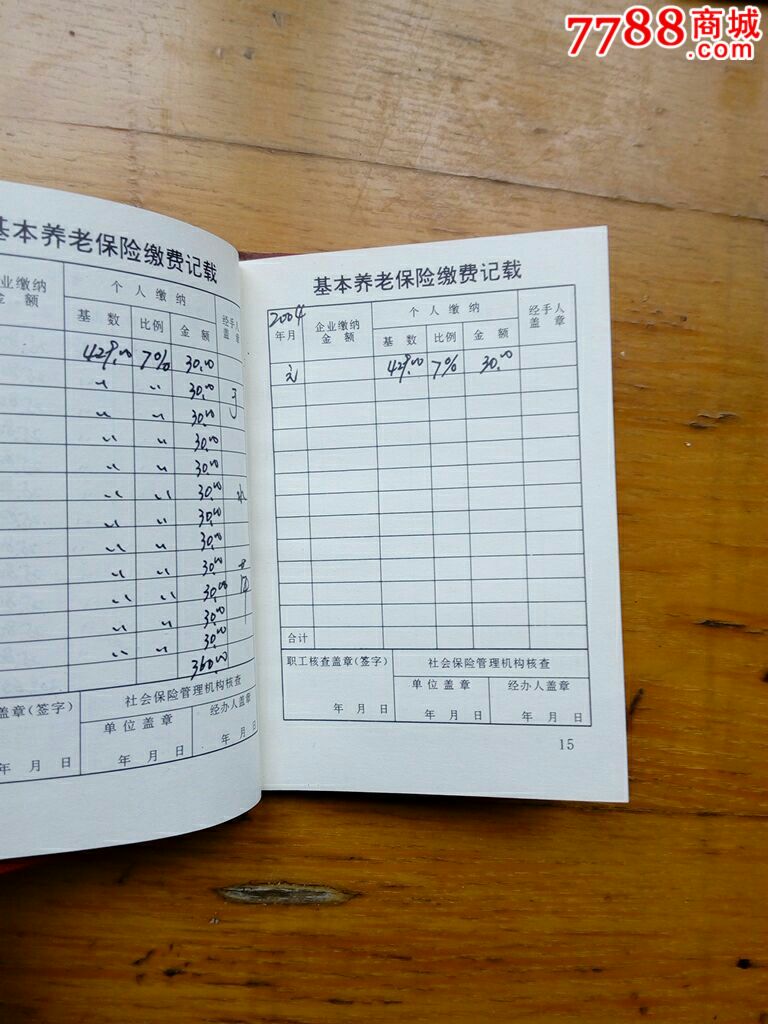 7788商城
.com
基本养老保险缴费记载
企业缴纳
金额
个人缴纳
经手人
盖章
基数 比例 金额
429.00 7% 30.00
〃 〃 30.00
〃 〃 30.00
〃 〃 30.00
〃 〃 30.00
〃 〃 30.00
〃 〃 30.00
〃 〃 30.00
〃 〃 30.00
〃 〃 30.00
〃 〃 30.00
〃 〃 30.00
360.00
盖章(签字)
社会保险管理机构核查
单位盖章 经办人盖章
年月日 年月日 年月日
基本养老保险缴费记载
2004
年月
企业缴纳
金额
个人缴纳
经手人
盖章
基数 比例 金额
429.00 7% 30.00
合计
职工核查盖章(签字) 社会保险管理机构核查
单位盖章 经办人盖章
年月日 年月日 年月日
15